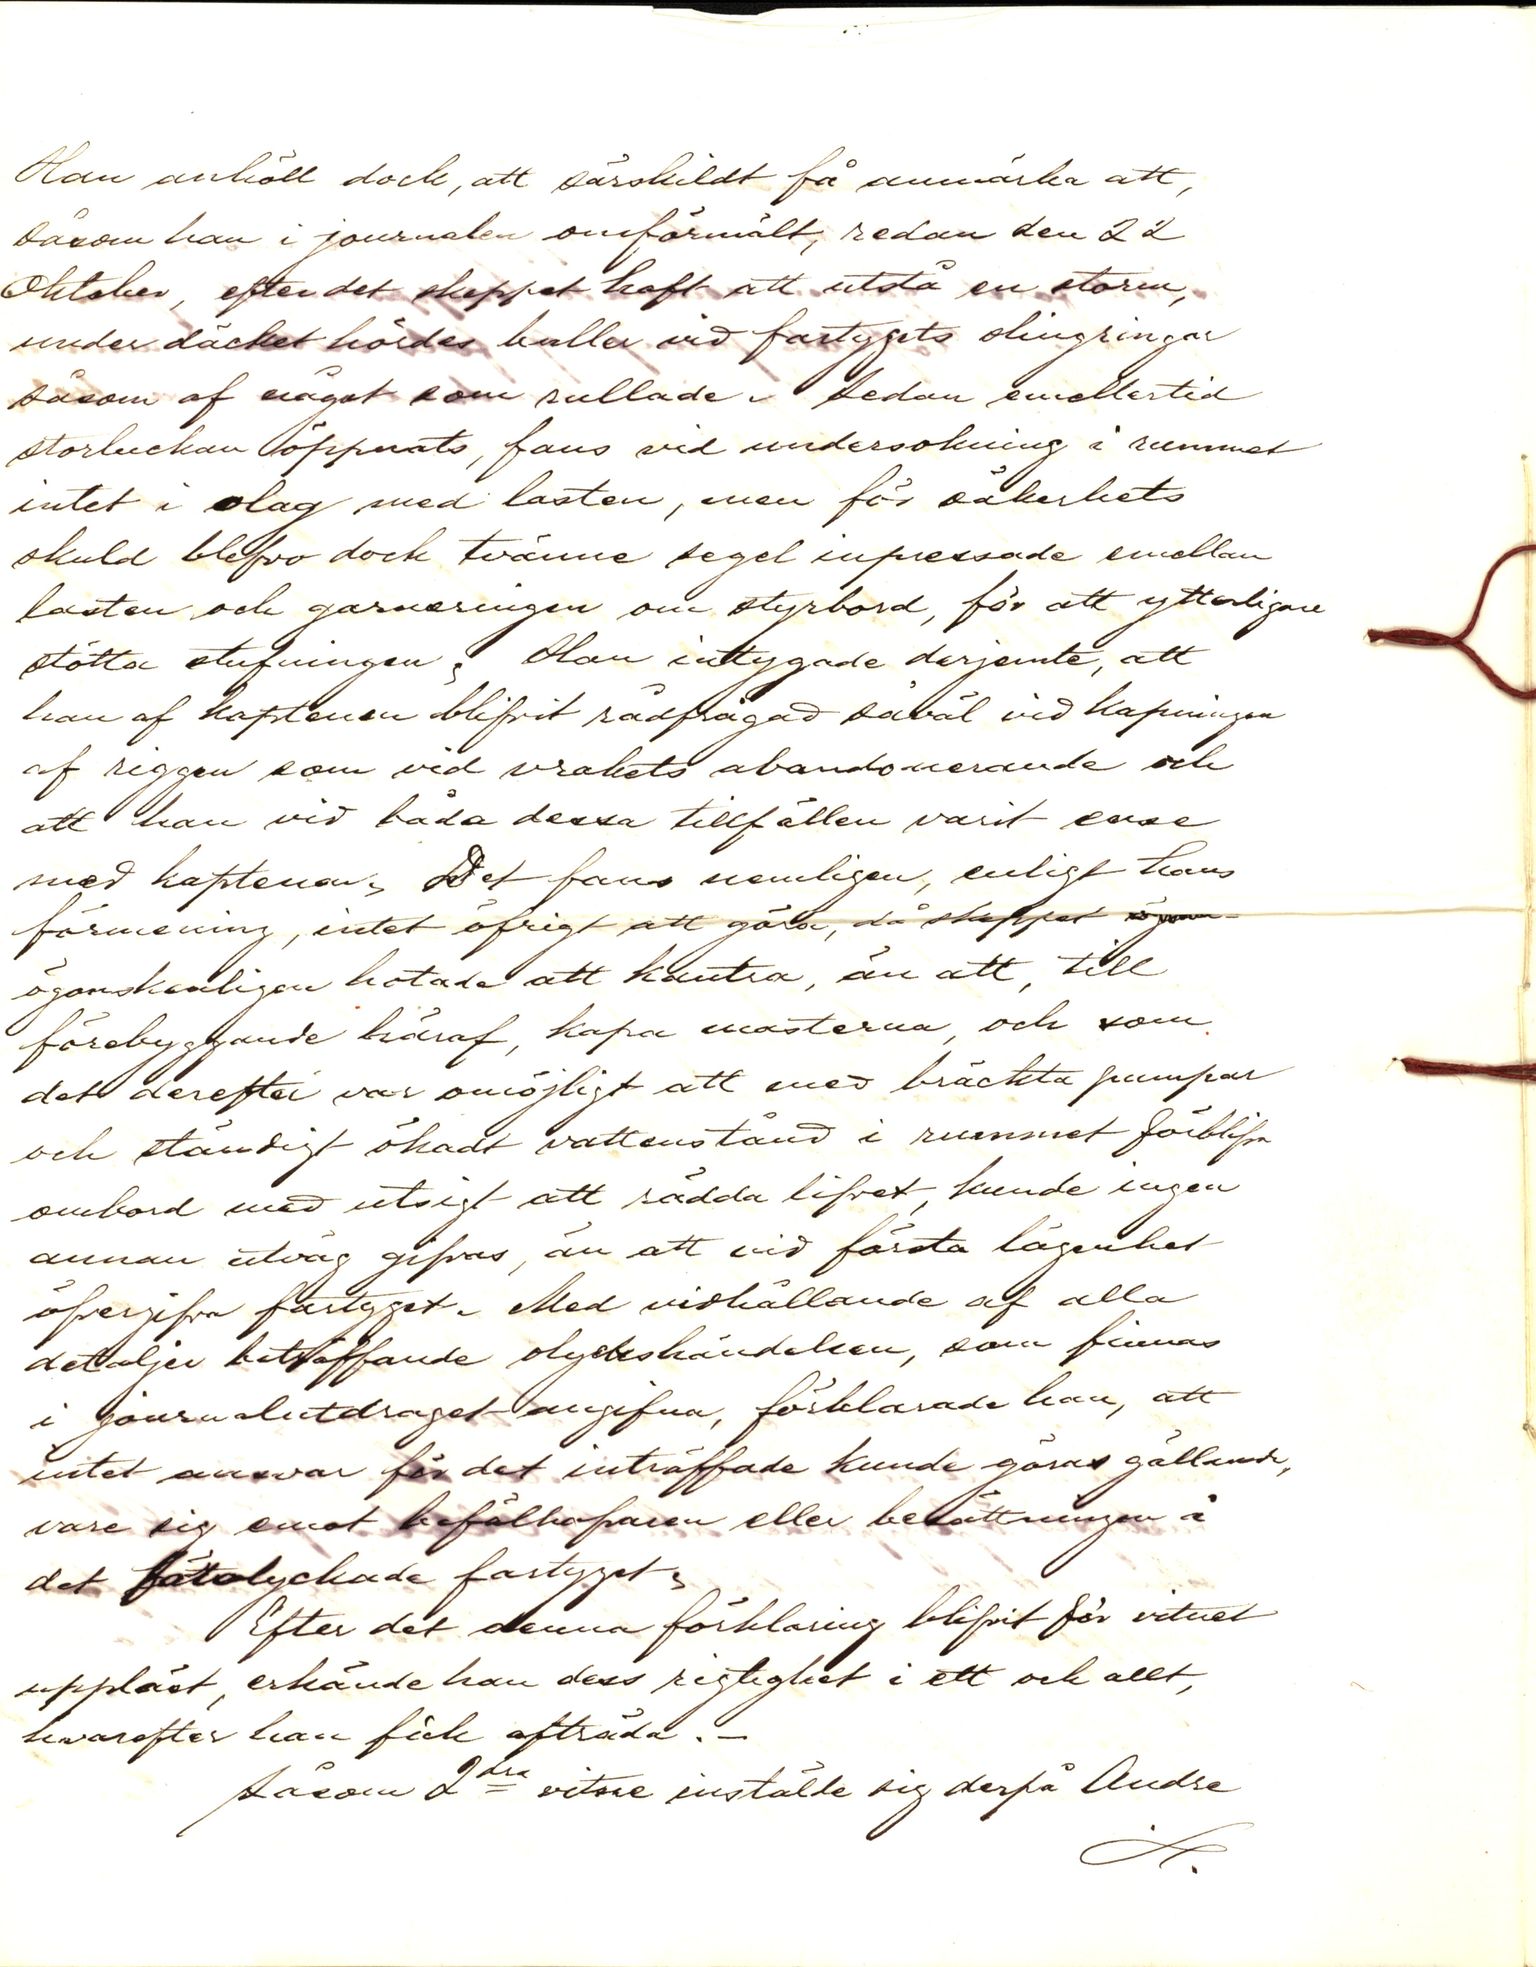 Han anhöll dock, att särskildt få anmärka att,
såsom han i journalen omförmält, redan den 22
Oktober, efter det skeppet haft att utstå en storm,
under däcket hördes buller vid fartygets slingringar
såsom af något som rullade. Sedan emellertid
storluckan öppnats, fans vid undersökning i rummet
intet i olag med lasten, men för säkerhets
skuld blefvo dock tvänne segel inpressade emellan
lasten och garneringen om styrbord, för att ytterligare
stötta stufningen. Han intygade derjemte, att
han af kaptenen blifvit rådfrågad såväl vid kapningen
af riggen som vid vrakets abandonnerande och
att han vid båda dessa tillfällen varit ense
med kaptenen. Det fans nemligen, enligt hans
förmening, intet öfrigt att göra, då skeppet
ögonskenligen hotade att kantra, än att, till
förebyggande häraf, kapa masterna, och som
det derefter var omöjligt att med bräckta pumpar
och ständigt ökadt vattenstånd i rummet förblifva
ombord med utsigt att rädda lifvet, kunde ingen
annan utväg gifvas, än att vid första lägenhet
öfvergifva fartyget. Med vidhållande af alla
detaljer beträffande olyckshändelsen, som finnas
i journalutdraget angifna, förklarade han, att
intet ansvar för det inträffade kunde göras gällande,
vare sig emot befälhafvaren eller besättningen å
det förolyckade fartyget.
Efter det denna förklaring blifvit för vitnet
uppläst, erkände han dess rigtighet i ett och allt,
hvarefter han fick afträda. -
Såsom 2dra vitne inställde sig derpå Andre